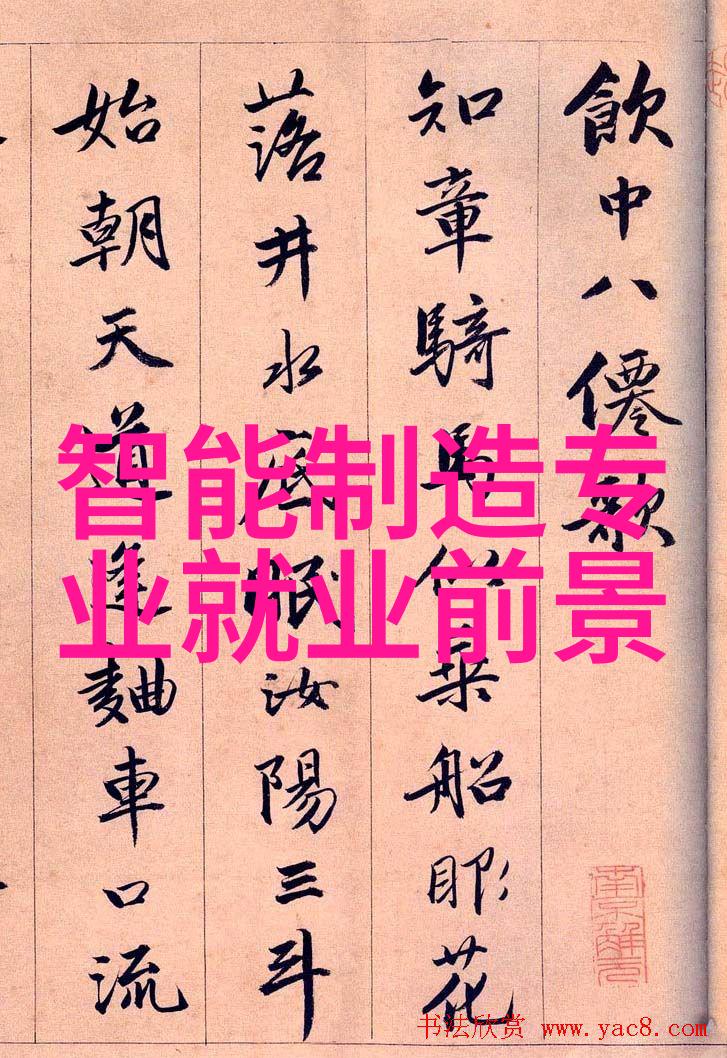 飲中八僊歌
知章騎馬似乘船眼花
落井水底眠汝陽三斗
始朝天道逢麯車口流
智能制造专
业就业前景
南京解元
书法欣赏 www.yac8.com